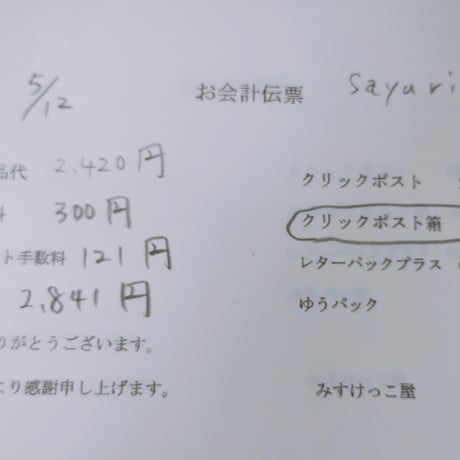 5/12
お会計伝票
sayuri
品代 2,420円
300円
ト手数料 121円
2,841円
りがとうございます。
より感謝申し上げます。
クリックポスト
クリックポスト箱
レターパックプラス
ゆうパック
みすけっこ屋